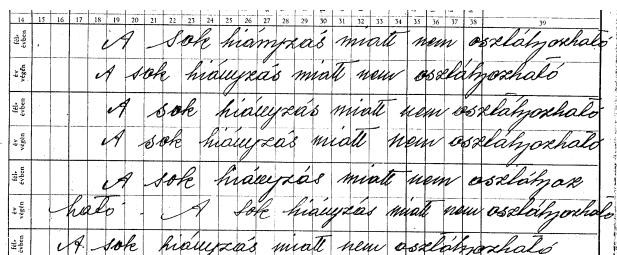 14 15 16 17 18 19 20 21 22 23 24 25 26 27 28 29 30 31 32 33 34 35 36 37 38 39
félévben A sok hiányzás miatt nem osztályozható
év végén A sok hiányzás miatt nem osztályozható
félévben A sok hiányzás miatt nem osztályozható
év végén A sok hiányzás miatt nem osztályozható
félévben A sok hiányzás miatt nem osztályoz
év végén ható. A sok hiányzás miatt nem osztályozható
félévben A sok hiányzás miatt nem osztályozható